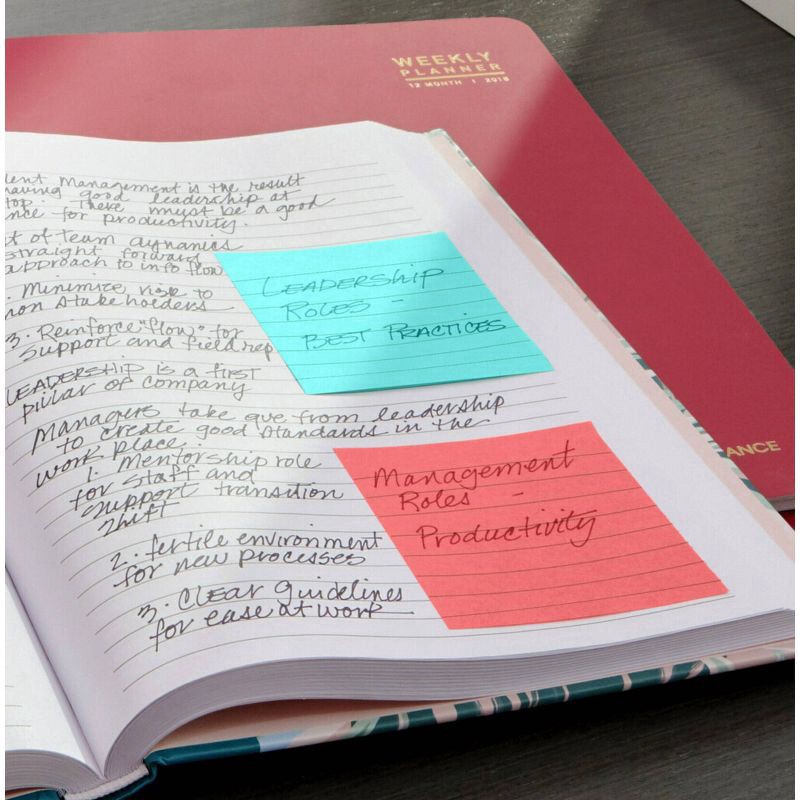 WEEKLY
PLANNER
12 MONTH | 2018
Management is the result
having good leadership at
top. There must be a good
for productivity.
of team dynamics
straight forward
approach to info flow
Minimize risk to
non stakeholders
3. Reinforce "flow" for
support and field rep
LEADERSHIP is a first
pillar of company
Managers take que from leadership
to create good standards in the
work place.
1. Mentorship role
for staff and
support transition
shift
2. fertile environment
for new processes
3. Clear guidelines
for ease at work
LEADERSHIP
ROLES -
BEST PRACTICES
Management
Roles -
Productivity
ANCE